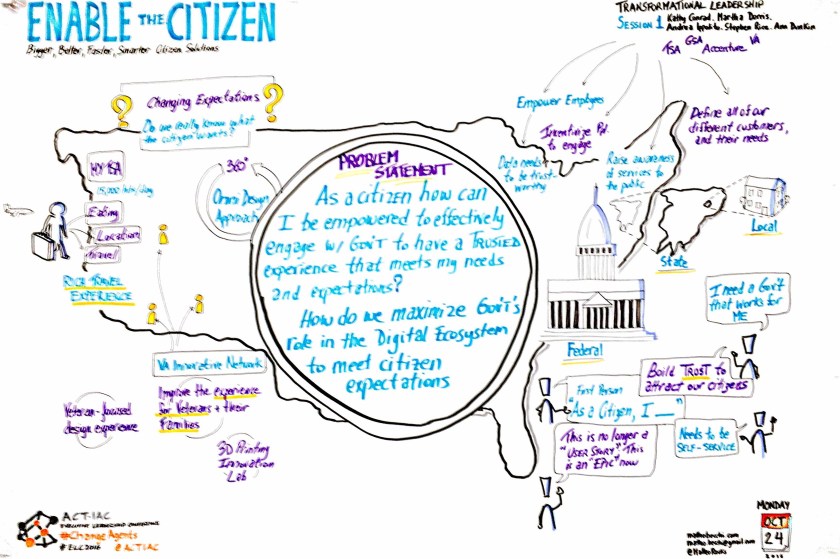 ENABLE THE CITIZEN
Bigger, Better, Faster, Smarter Citizen Solutions
TRANSFORMATIONAL LEADERSHIP
SESSION 1 Kathy Conrad, Martha Dorris,
Andrea Ippolito, Stephen Rice, Ann Dunkin
TSA GSA Accenture VA
Changing Expectations
Do we really know what
the citizen wants?
360°
Omni Design
Approach
MY TSA
Eating
Location
Travel
RICH TRAVEL
EXPERIENCE
PROBLEM
STATEMENT
As a citizen how can
I be empowered to effectively
engage w/ Gov't to have a TRUSTED
experience that meets my needs
and expectations?
How do we maximize Gov't's
role in the Digital Ecosystem
to meet citizen
expectations
Empower Employees
Incentivize
to engage
Data needs
to be trust-
worthy
Raise awareness
of services to
the public
Define all of our
different customers,
and their needs
Local
State
Federal
I need a Gov't
that works for
ME
Build TRUST to
attract our citizens
First Person
"As a Citizen, I ___"
Needs to be
SELF-SERVICE
This is no longer a
"USER STORY" This
is an "EPIC" now
VA Innovative Network
Veteran-focused
design experience
Improve the experience
for Veterans + their
Families
3D Printing
Innovation
Lab
ACT-IAC
EXECUTIVE LEADERSHIP CONFERENCE
#ChangeAgents
#ELC2016 @ACTIAC
MONDAY
OCT
24